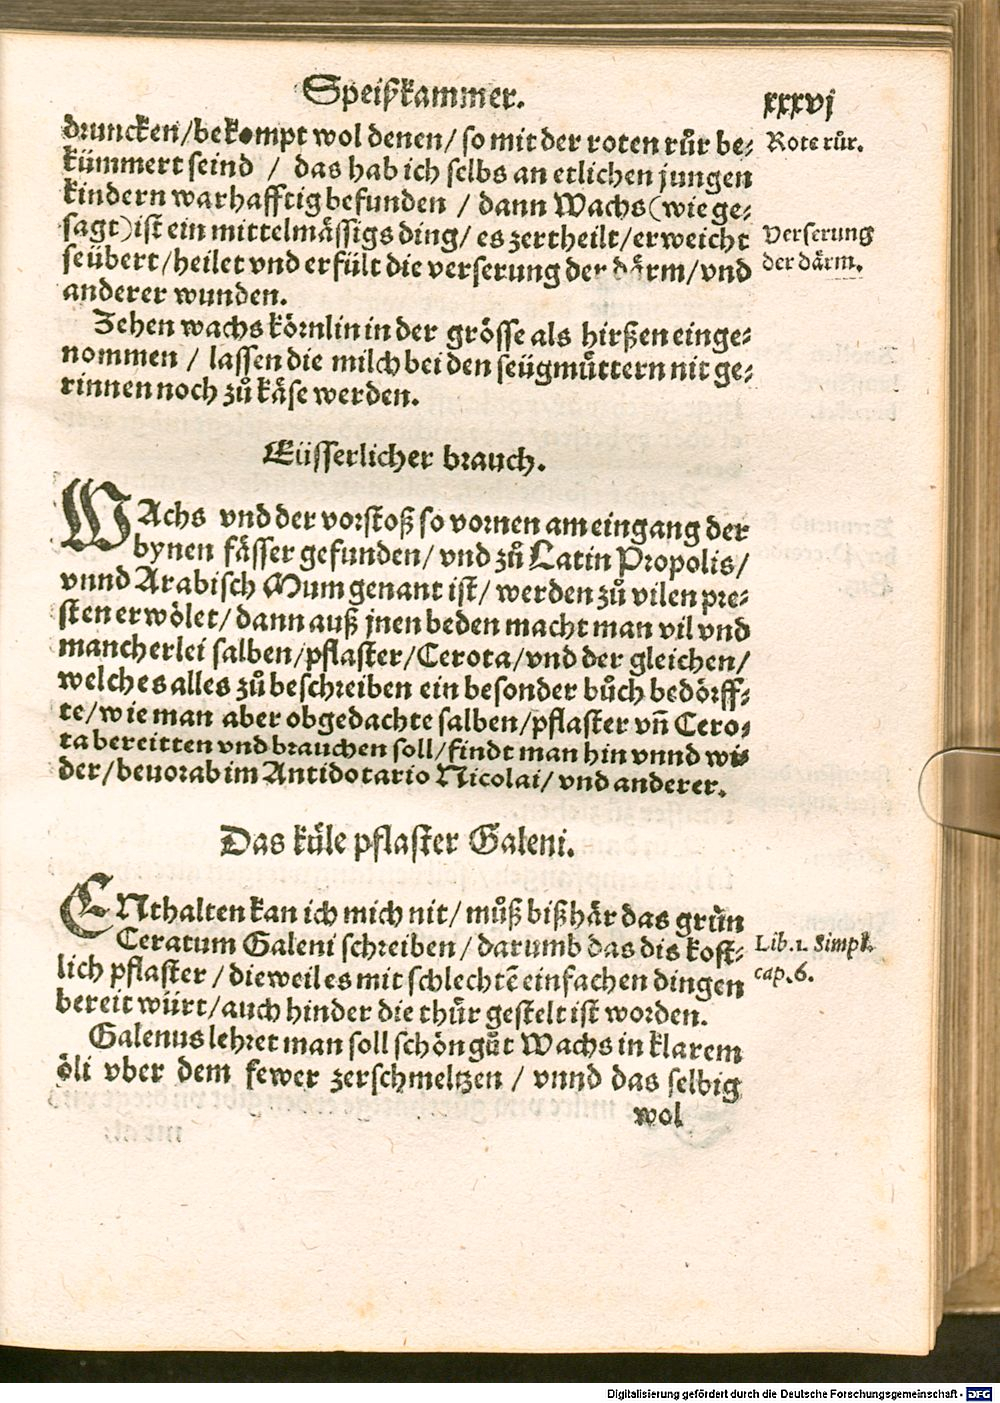 Speißkammer.
xxxvj
druncken/bekompt wol denen/ so mit der roten růr be⸗
kümmert seind / das hab ich selbs an etlichen jungen
kindern warhafftig befunden / dann Wachs(wie ge⸗
sagt)ist ein mittelmässigs ding/ es zertheilt/erweicht
seübert/heilet vnd erfült die verserung der därm/vnd
anderer wunden.
Rote růr.
Verserung
der därm.
Zehen wachs körnlin in der grösse als hirßen einge⸗
nommen / lassen die milch bei den seügmůttern nit ge⸗
rinnen noch zů käse werden.
Eüsserlicher brauch.
WAchs vnd der vorstoß so vornen am eingang der
bynen fässer gefunden/ vnd zů Latin Propolis/
vnnd Arabisch Mum genant ist/ werden zů vilen pre⸗
sten erwölet/ dann auß jnen beden macht man vil vnd
mancherlei salben/pflaster/Cerota/vnd der gleichen/
welches alles zů beschreiben ein besonder bůch bedörff⸗
te/wie man aber obgedachte salben/pflaster vñ Cero⸗
ta bereitten vnd brauchen soll/findt man hin vnnd wi⸗
der/beuorab im Antidotario Nicolai/ vnd anderer.
Das küle pflaster Galeni.
ENthalten kan ich mich nit/ můß bißhär das grün
Ceratum Galeni schreiben/ darumb das dis kost⸗
lich pflaster / dieweil es mit schlechtē einfachen dingen
bereit würt/auch hinder die thůr gestelt ist worden.
Lib. 1. Simpl.
cap. 6.
Galenus lehret man soll schön gůt Wachs in klarem
öli vber dem fewer zerschmeltzen / vnnd das selbig
wol
Digitalisierung gefördert durch die Deutsche Forschungsgemeinschaft - DFG